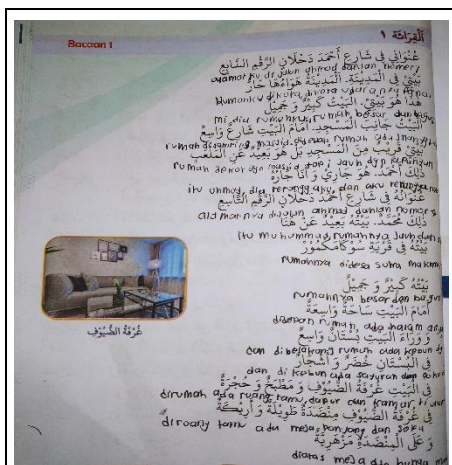 Bacaan 1
اَلْقِرَاءَةُ ١
عُنْوَانِيْ فِي شَارِعِ أَحْمَدَ دَحْلَانَ الرَّقْمِ السَّابِعِ
alamatku di jalan ahmad dahlan nomer 7
بَيْتِيْ فِي الْمَدِيْنَةِ. اَلْمَدِيْنَةُ هَوَاءُهَا حَارٌّ
rumahku di kota, dikota udaranya panas
هَذَا هُوَ بَيْتِيْ. اَلْبَيْتُ كَبِيْرٌ وَ جَمِيْلٌ
ini dia rumahku, rumah besar dan bagus
اَلْبَيْتُ جَانِبَ الْمَسْجِدِ. أَمَامَ الْبَيْتِ شَارِعٌ وَاسِعٌ
rumah disamping masjid, didepan rumah ada jalan
بَيْتِيْ قَرِيْبٌ مِنَ الْمَسْجِدِ بَلْ هُوَ بَعِيْدٌ عَنِ الْمَلْعَبِ
rumah dekat dgn masjid tapi jauh dgn lapangan
ذَلِكَ أَحْمَدُ. هُوَ جَارِيْ وَ أَنَا جَارُهُ
itu ahmad, dia tetanggaku, dan aku
عُنْوَانُهُ فِي شَارِعِ أَحْمَدَ دَحْلَانَ الرَّقْمِ التَّاسِعِ
alamatnya dijalan ahmad dahlan nomer 9
ذَلِكَ مُحَمَّدٌ. بَيْتُهُ بَعِيْدٌ عَنْ هُنَا
itu muhammad, rumahnya jauh dari
بَيْتُهُ فِي قَرْيَةِ سُوْكَامَكْمُوْرْ
rumahnya didesa suka makmur
بَيْتُهُ كَبِيْرٌ وَ جَمِيْلٌ
rumahnya besar dan bagus
أَمَامَ الْبَيْتِ سَاحَةٌ وَاسِعَةٌ
didepan rumah, ada
وَ وَرَاءَ الْبَيْتِ بُسْتَانٌ وَاسِعٌ
dan dibelakang rumah ada kebun
فِي الْبُسْتَانِ خُضَرٌ وَ أَشْجَارٌ
dan di kebun ada sayuran dan pohon
فِي الْبَيْتِ غُرْفَةُ الضُّيُوْفِ وَ مَطْبَخٌ وَ حُجْرَةٌ
dirumah ada ruang tamu, dapur dan kamar tidur
فِي غُرْفَةِ الضُّيُوْفِ مِنْضَدَةٌ طَوِيْلَةٌ وَ أَرِيْكَةٌ
diruang tamu ada meja panjang dan sofa
وَ عَلَى الْمِنْضَدَةِ مَزْهَرِيَّةٌ
diatas meja ada bunga
غُرْفَةُ الضُّيُوْفِ